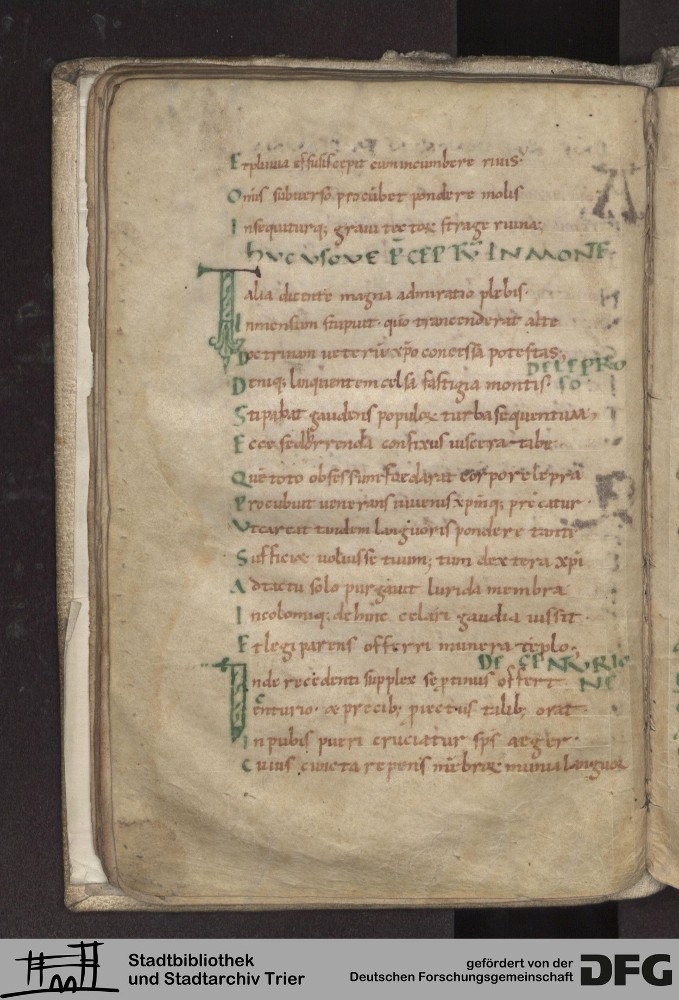 Et pluuia effusi susceꝑit cum incumbere riuis·
Omis subuerso procubet pondere molis
Insequiturq; graui tector strage ruina;
hVCVSQVE P̄CEPTŪ IN MONTE
Talia dicente magna admiratio plebis·
Inmensum stupuit· quo transcenderat alte
Doctrinam ueterū xp̄o concessa potestas;
DE LEPRO
SO
Deniq; linquentem celsa fastigia montis·
Stipabat gaudens populor turba sequentum;
Ecce sed horrenda confixus uiscera tabe
Quē toto obsessum foedarat corpore lepra
Procubuit uenerans iuuenis xp̄mq; precatur·
Vt careat tandem languoris pondere tanti
Sufficiæ uoluisse tuum; tum dextera xp̄i
Adtactu solo purgauit lurida membra
Incolomiq; dehinc celari gaudia iussit·
Et legi parens offerri munera tēplo;
DE CENTVRIO
NE
Inde recedenti supplex se ptinus offert·
Centurio· & precib; pirectus talib; orat·
In pubis pueri cruciatur sp̄s aeger·
Cuius cuncta repens mēbror munia languor
Stadtbibliothek
und Stadtarchiv Trier
gefördert von der
Deutschen Forschungsgemeinschaft
DFG